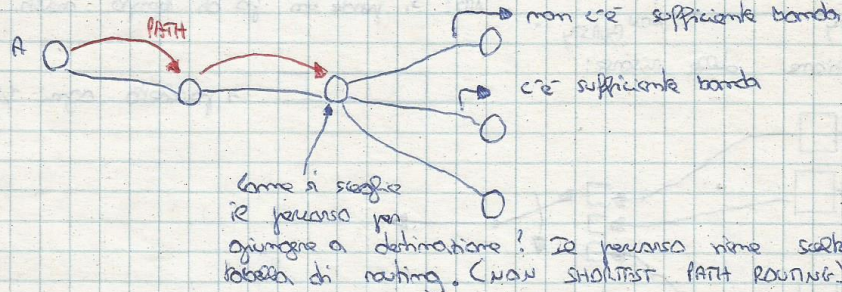 non c'è sufficiente banda
PATH
A
c'è sufficiente banda
Come si sceglie
il percorso per
giungere a destinazione? Il percorso viene scelt
tabella di routing. (NON SHORTEST PATH ROUTING)